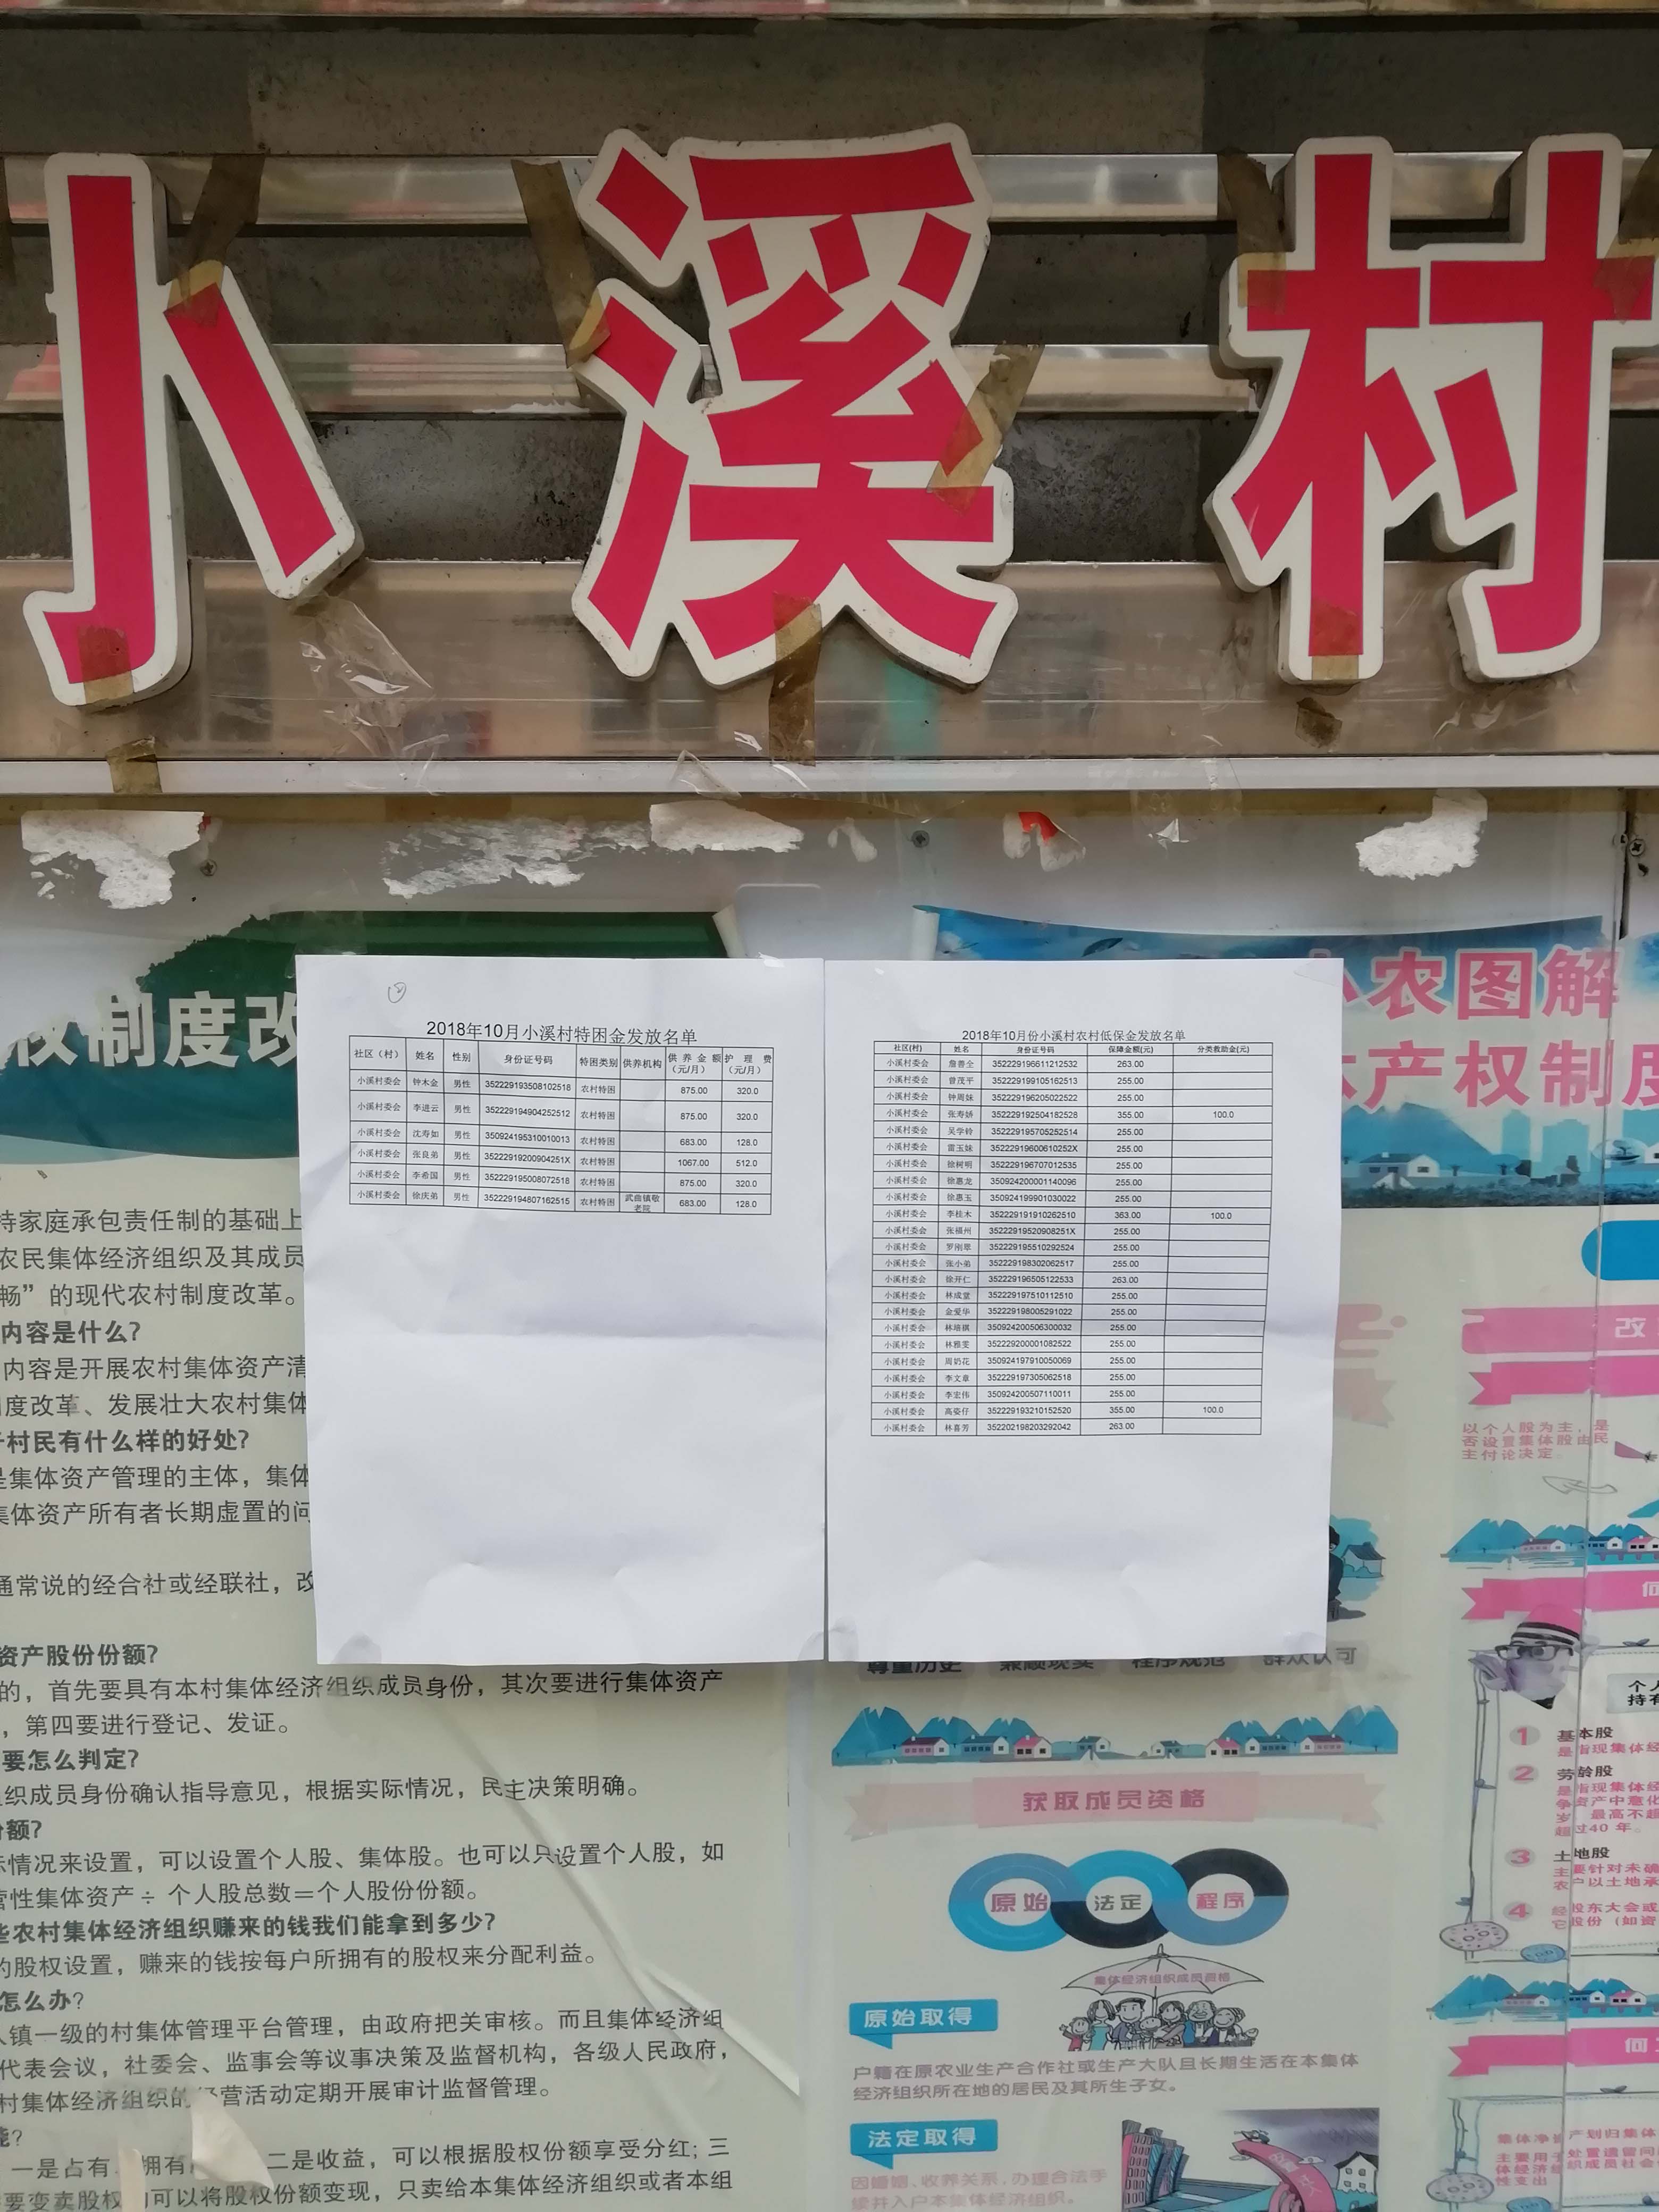 小溪村
权制度改
小农图解
产权制度
2018年10月小溪村特困金发放名单
社区（村） 姓名 性别 身份证号码 特困类别 供养机构 供养金额（元/月） 护理费（元/月）
小溪村委会 钟木金 男性 352229193508102518 农村特困 875.00 320.0
小溪村委会 李进云 男性 352229194904252512 农村特困 875.00 320.0
小溪村委会 沈寿如 男性 350924195310010013 农村特困 683.00 128.0
小溪村委会 张良弟 男性 35222919200904251X 农村特困 1067.00 512.0
小溪村委会 李希国 男性 352229195008072518 农村特困 875.00 320.0
小溪村委会 徐庆弟 男性 352229194807162515 农村特困 武曲镇敬老院 683.00 128.0
2018年10月份小溪村农村低保金发放名单
社区(村) 姓名 身份证号码 保障金额(元) 分类救助金(元)
小溪村委会 詹善全 352229196611212532 263.00
小溪村委会 曾茂平 352229199105162513 255.00
小溪村委会 钟周妹 352229196205022522 255.00
小溪村委会 张寿娇 352229192504182528 355.00 100.0
小溪村委会 吴学铃 352229195705252514 255.00
小溪村委会 雷玉妹 35222919600610252X 255.00
小溪村委会 徐树明 352229196707012535 255.00
小溪村委会 徐惠龙 350924200001140096 255.00
小溪村委会 徐惠玉 350924199901030022 255.00
小溪村委会 李桂木 352229191910262510 363.00 100.0
小溪村委会 张福州 35222919520908251X 255.00
小溪村委会 罗刚翠 352229195510292524 255.00
小溪村委会 张小弟 352229198302062517 255.00
小溪村委会 徐开仁 352229196505122533 263.00
小溪村委会 林成堂 352229197510112510 255.00
小溪村委会 金爱华 352229198005291022 255.00
小溪村委会 林培祺 350924200506300032 255.00
小溪村委会 林雅雯 352229200001082522 255.00
小溪村委会 周奶花 350924197910050069 255.00
小溪村委会 李文章 352229197305062518 255.00
小溪村委会 李宏伟 350924200507110011 255.00
小溪村委会 高姿仔 352229193210152520 355.00 100.0
小溪村委会 林喜芳 352202198203292042 263.00
持家庭承包责任制的基础上
农民集体经济组织及其成员
畅”的现代农村制度改革。
内容是什么?
内容是开展农村集体资产清
度改革、发展壮大农村集体
村民有什么样的好处?
是集体资产管理的主体，集体
集体资产所有者长期虚置的问
通常说的经合社或经联社，改
资产股份份额?
的，首先要具有本村集体经济组织成员身份，其次要进行集体资产
，第四要进行登记、发证。
要怎么判定?
织成员身份确认指导意见，根据实际情况，民主决策明确。
份额?
际情况来设置，可以设置个人股、集体股。也可以只设置个人股，如
营性集体资产÷ 个人股总数=个人股份份额。
些农村集体经济组织赚来的钱我们能拿到多少?
的股权设置，赚来的钱按每户所拥有的股权来分配利益。
怎么办?
镇一级的村集体管理平台管理，由政府把关审核。而且集体经济组
代表会议，社委会、监事会等议事决策及监督机构，各级人民政府，
村集体经济组织的经营活动定期开展审计监督管理。
能?
一是占有 拥有 二是收益，可以根据股权份额享受分红; 三
要变卖股权 可以将股权份额变现，只卖给本集体经济组织或者本组
尊重历史 兼顾现实 程序规范 群众认可
获取成员资格
原始 法定 程序
集体经济组织成员资格
原始取得
户籍在原农业生产合作社或生产大队且长期生活在本集体
经济组织所在地的居民及其所生子女。
法定取得
因婚姻、收养关系，办理合法手
续并入户本集体经济组织。
改
以个人股为主，是
否设置集体股由民
主讨论决定。
何
个人
持有
1 基本股
是指现集体经
2 劳龄股
是指现集体经
超过40年。
3 土地股
主要针对未确
农户以土地承
4 经股东大会或
它股份（如资
何
集体净资产划归集体
主要用于处置遗留问
体经济组织成员社会
性支出